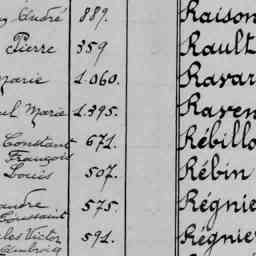 André 889. Raison
Pierre 359 Rault
Marie 1.060. Ravar
Marie 1.395. Raven
Constant 671. Rébillo
François
Louis 507. Rébin
André 575. Régnie
Toussaint
Victor 591. Régnie
Ambroise